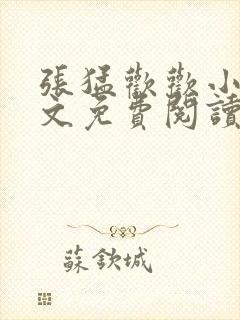 張猛歡歡小
文免費閱讀
蘇欽城